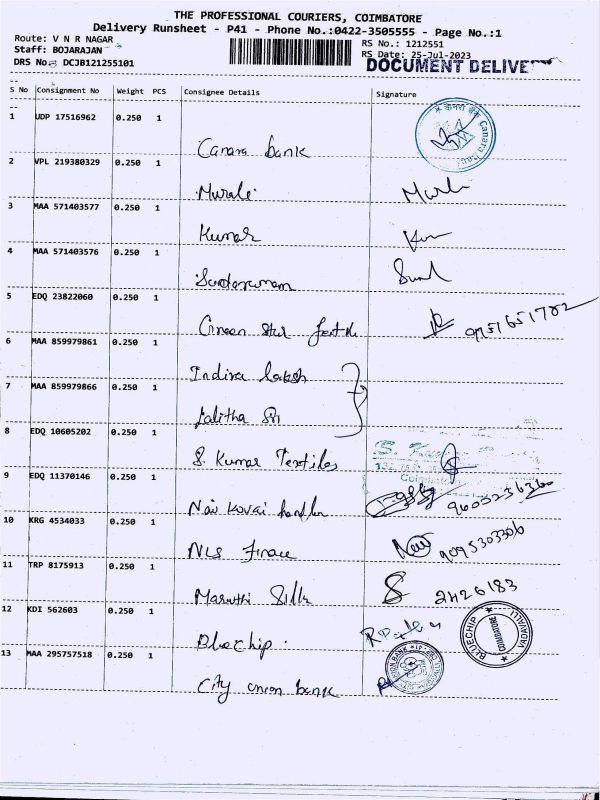 THE PROFESSIONAL COURIERS, COIMBATORE
Delivery Runsheet - P41 - Phone No.:0422-3505555 - Page No.:1
Route: V N R NAGAR
RS No.: 1212551
Staff: BOJARAJAN
RS Date: 25-Jul-2023
DRS No.: DCJB121255101
DOCUMENT DELIVE
S No Consignment No Weight PCS Consignee Details Signature
1 UDP 17516962 0.250 1
Canara bank
Canara
2 VPL 219380329 0.250 1
Murali
3 MAA 571403577 0.250 1
Kumar
4 MAA 571403576 0.250 1
Sundaramam
5 EDQ 23822060 0.250 1
Green Star 9751651782
6 MAA 859979861 0.250 1
Indira
7 MAA 859979866 0.250 1
Lalitha Sri
8 EDQ 10605202 0.250 1
S. Kumar Textiles
S.
9 EDQ 11370146 0.250 1
Kovai
10 KRG 4534033 0.250 1
NLS 9095303306
11 TRP 8175913 0.250 1
Maruthi Silk 2426183
12 KDI 562603 0.250 1
Bluechip
BLUECHIP COIMBATORE VADAVALLI
13 MAA 295757518 0.250 1
City union bank